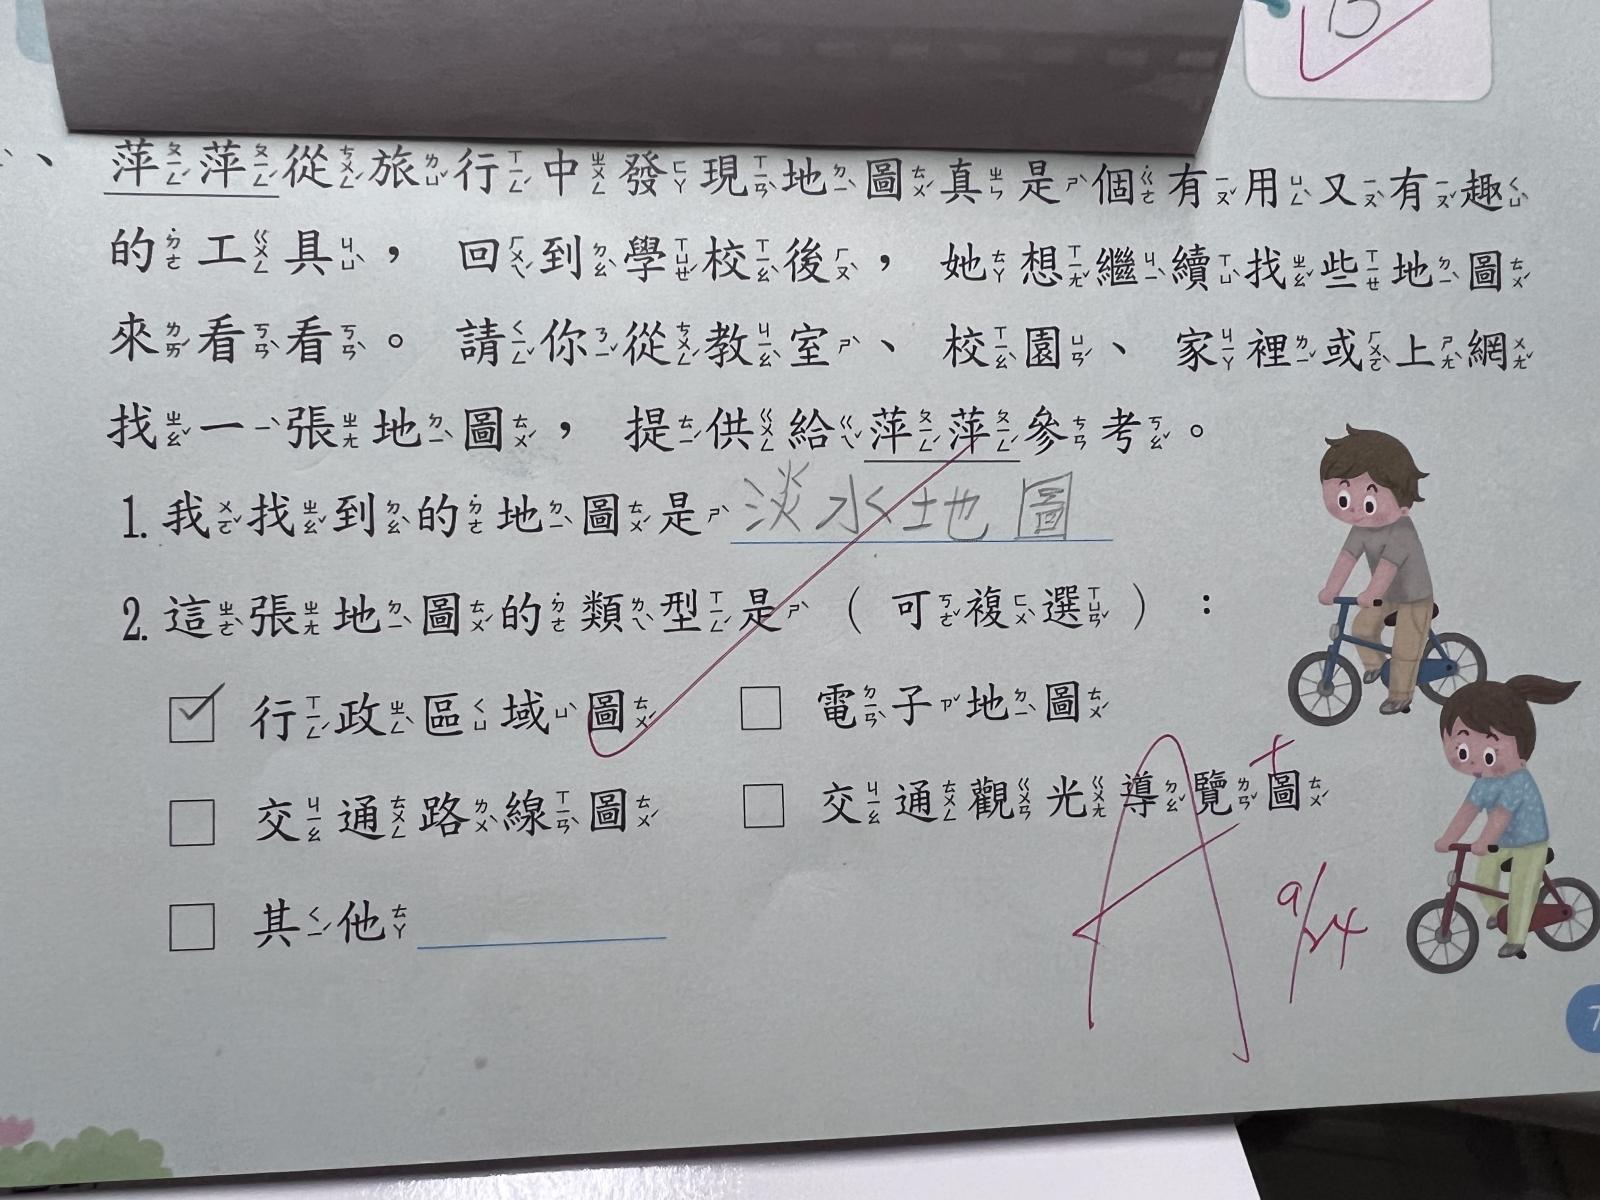 、萍萍從旅行中發現地圖真是個有用又有趣
的工具，回到學校後，她想繼續找些地圖
來看看。請你從教室、校園、家裡或上網
找一張地圖，提供給萍萍參考。
1. 我找到的地圖是淡水地圖
2. 這張地圖的類型是（可複選）：
行政區域圖 電子地圖
交通路線圖 交通觀光導覽圖
其他
A+
9/24